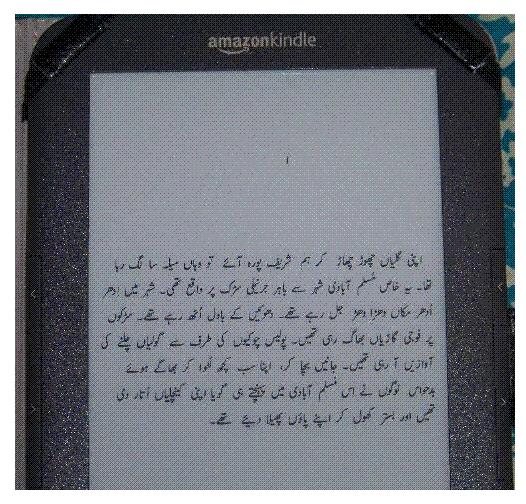 amazonkindle
۱
اپنی گلیاں چھوڑ چھاڑ کر ہم شریف پورہ آئے تو وہاں میلہ سا لگ رہا
تھا۔ یہ خاص مُسلم آبادی شہر سے باہر جرنیلی سڑک پر واقع تھی۔ شہر میں اِدھر
اُدھر مکاں دھڑا دھڑ جل رہے تھے۔ دھوئیں کے بادل اُٹھ رہے تھے۔ سڑکوں
پر فوجی گاڑیاں بھاگ رہی تھیں۔ پولیس چوکیوں کی طرف سے گولیاں چلنے کی
آوازیں آ رہی تھیں۔ جانیں بچا کر، اپنا سب کچھ لُٹوا کر بھاگے ہوئے
بدحواس لوگوں نے اس مُسلم آبادی میں پہنچتے ہی گویا اپنی کینچلیاں اُتار دی
تھیں اور بستر کھول کر اپنے پاؤں پھیلا دیئے تھے۔